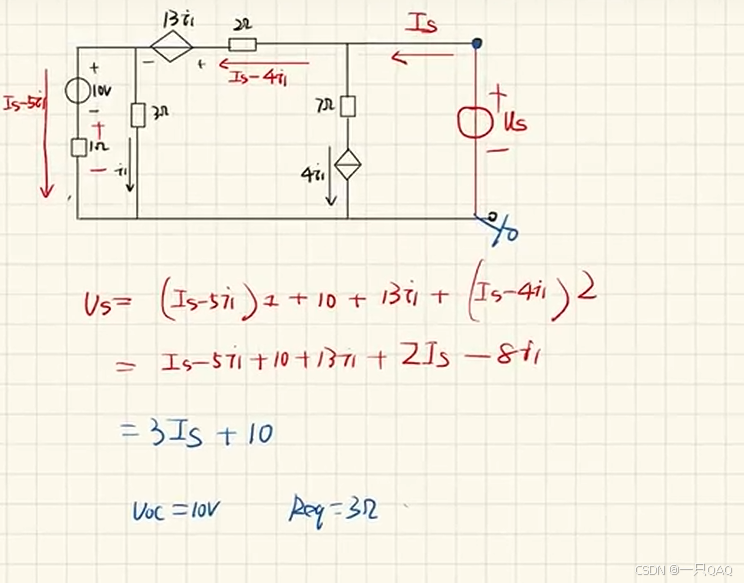 13i₁
2Ω
Is
Is-4i₁
+
10V
-
Is-5i₁
-
+
3Ω
7Ω
+
Us
-
+
1Ω
-
i₁
4i₁
Us= (Is-5i₁)1+10+13i₁+(Is-4i₁)2
= Is-5i₁+10+13i₁+2Is-8i₁
=3Is+10
Uoc=10V Req=3Ω
CSDN @一只QAQ